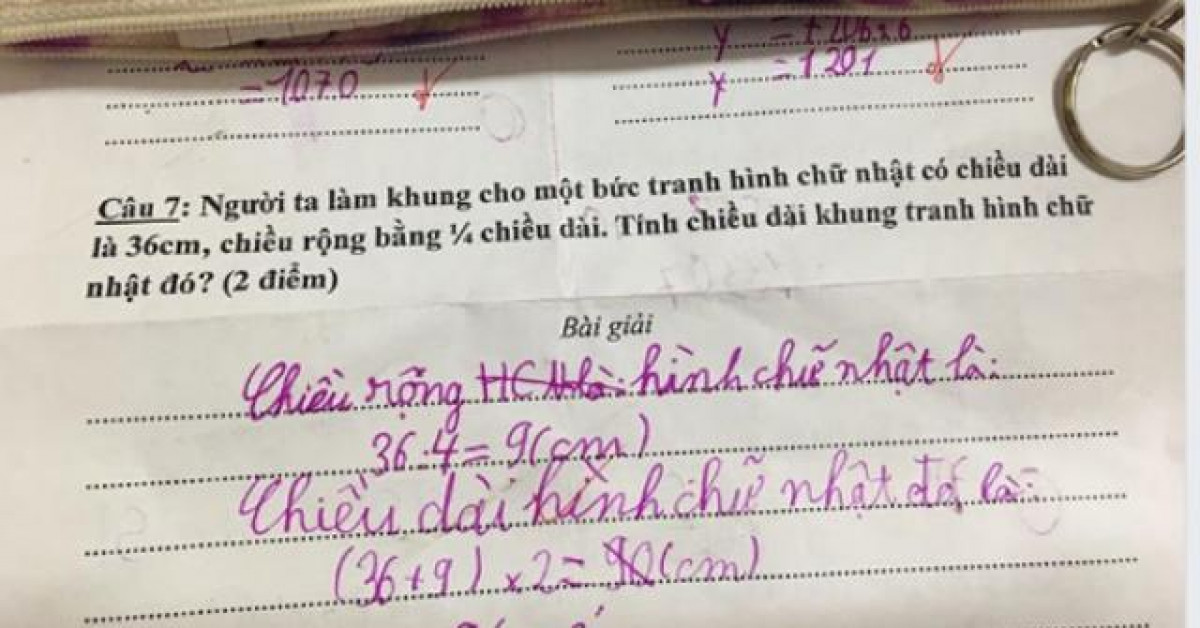 y = 1206 x 6
= 1070
y = 1201
Câu 7: Người ta làm khung cho một bức tranh hình chữ nhật có chiều dài
là 36cm, chiều rộng bằng ¼ chiều dài. Tính chiều dài khung tranh hình chữ
nhật đó? (2 điểm)
Bài giải
Chiều rộng hình chữ nhật là:
36 : 4 = 9(cm)
Chiều dài hình chữ nhật đó là:
(36+9) x 2 = 90(cm)